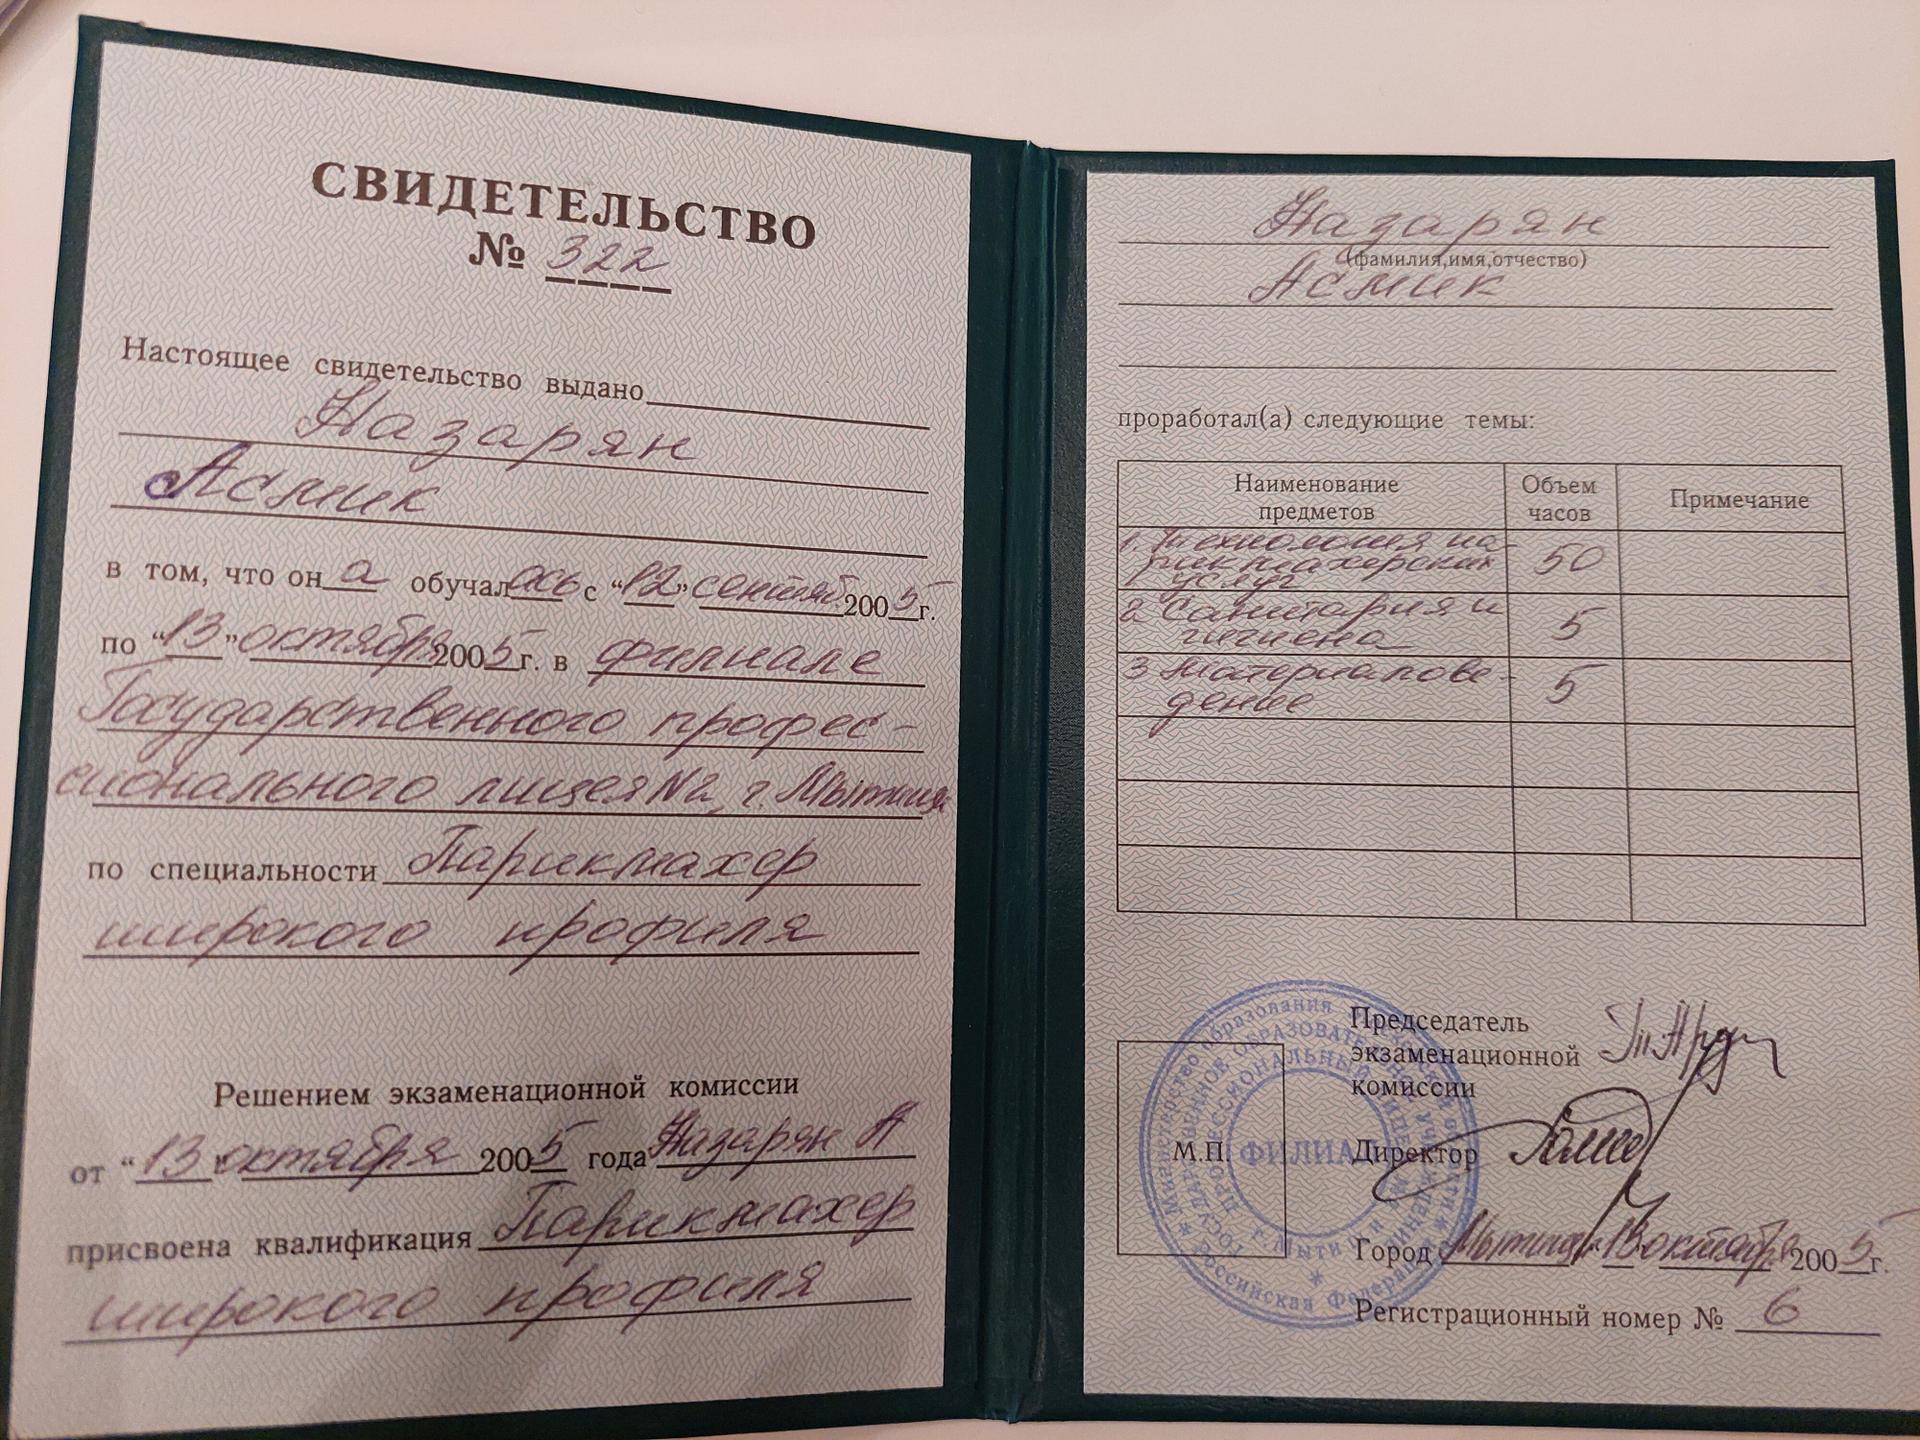 СВИДЕТЕЛЬСТВО
№ 322
Настоящее свидетельство выдано
Назарян
Асмик
в том, что он а обучалась с “12” сентяб. 2005 г.
по “13” октября 2005 г. в филиале
Государственного профес-
сионального лицея N2, г. Мытищи
по специальности Парикмахер
широкого профиля
Решением экзаменационной комиссии
от “13” октября 2005 года Назарян А
присвоена квалификация Парикмахер
широкого профиля
Назарян
(фамилия,имя,отчество)
Асмик
проработал(а) следующие темы:
Наименование предметов Объем часов Примечание
1. Технология па-
рикмахерских 50
услуг
2. Санитария и
гигиена 5
3 Материалове-
дение 5
Председатель
экзаменационной
комиссии
М.П. Директор
Город Мытищи “13” октября 2005 г.
Регистрационный номер № 6
Министерство образования Московской области
Российская Федерация
ФИЛИАЛ
г. Мытищи